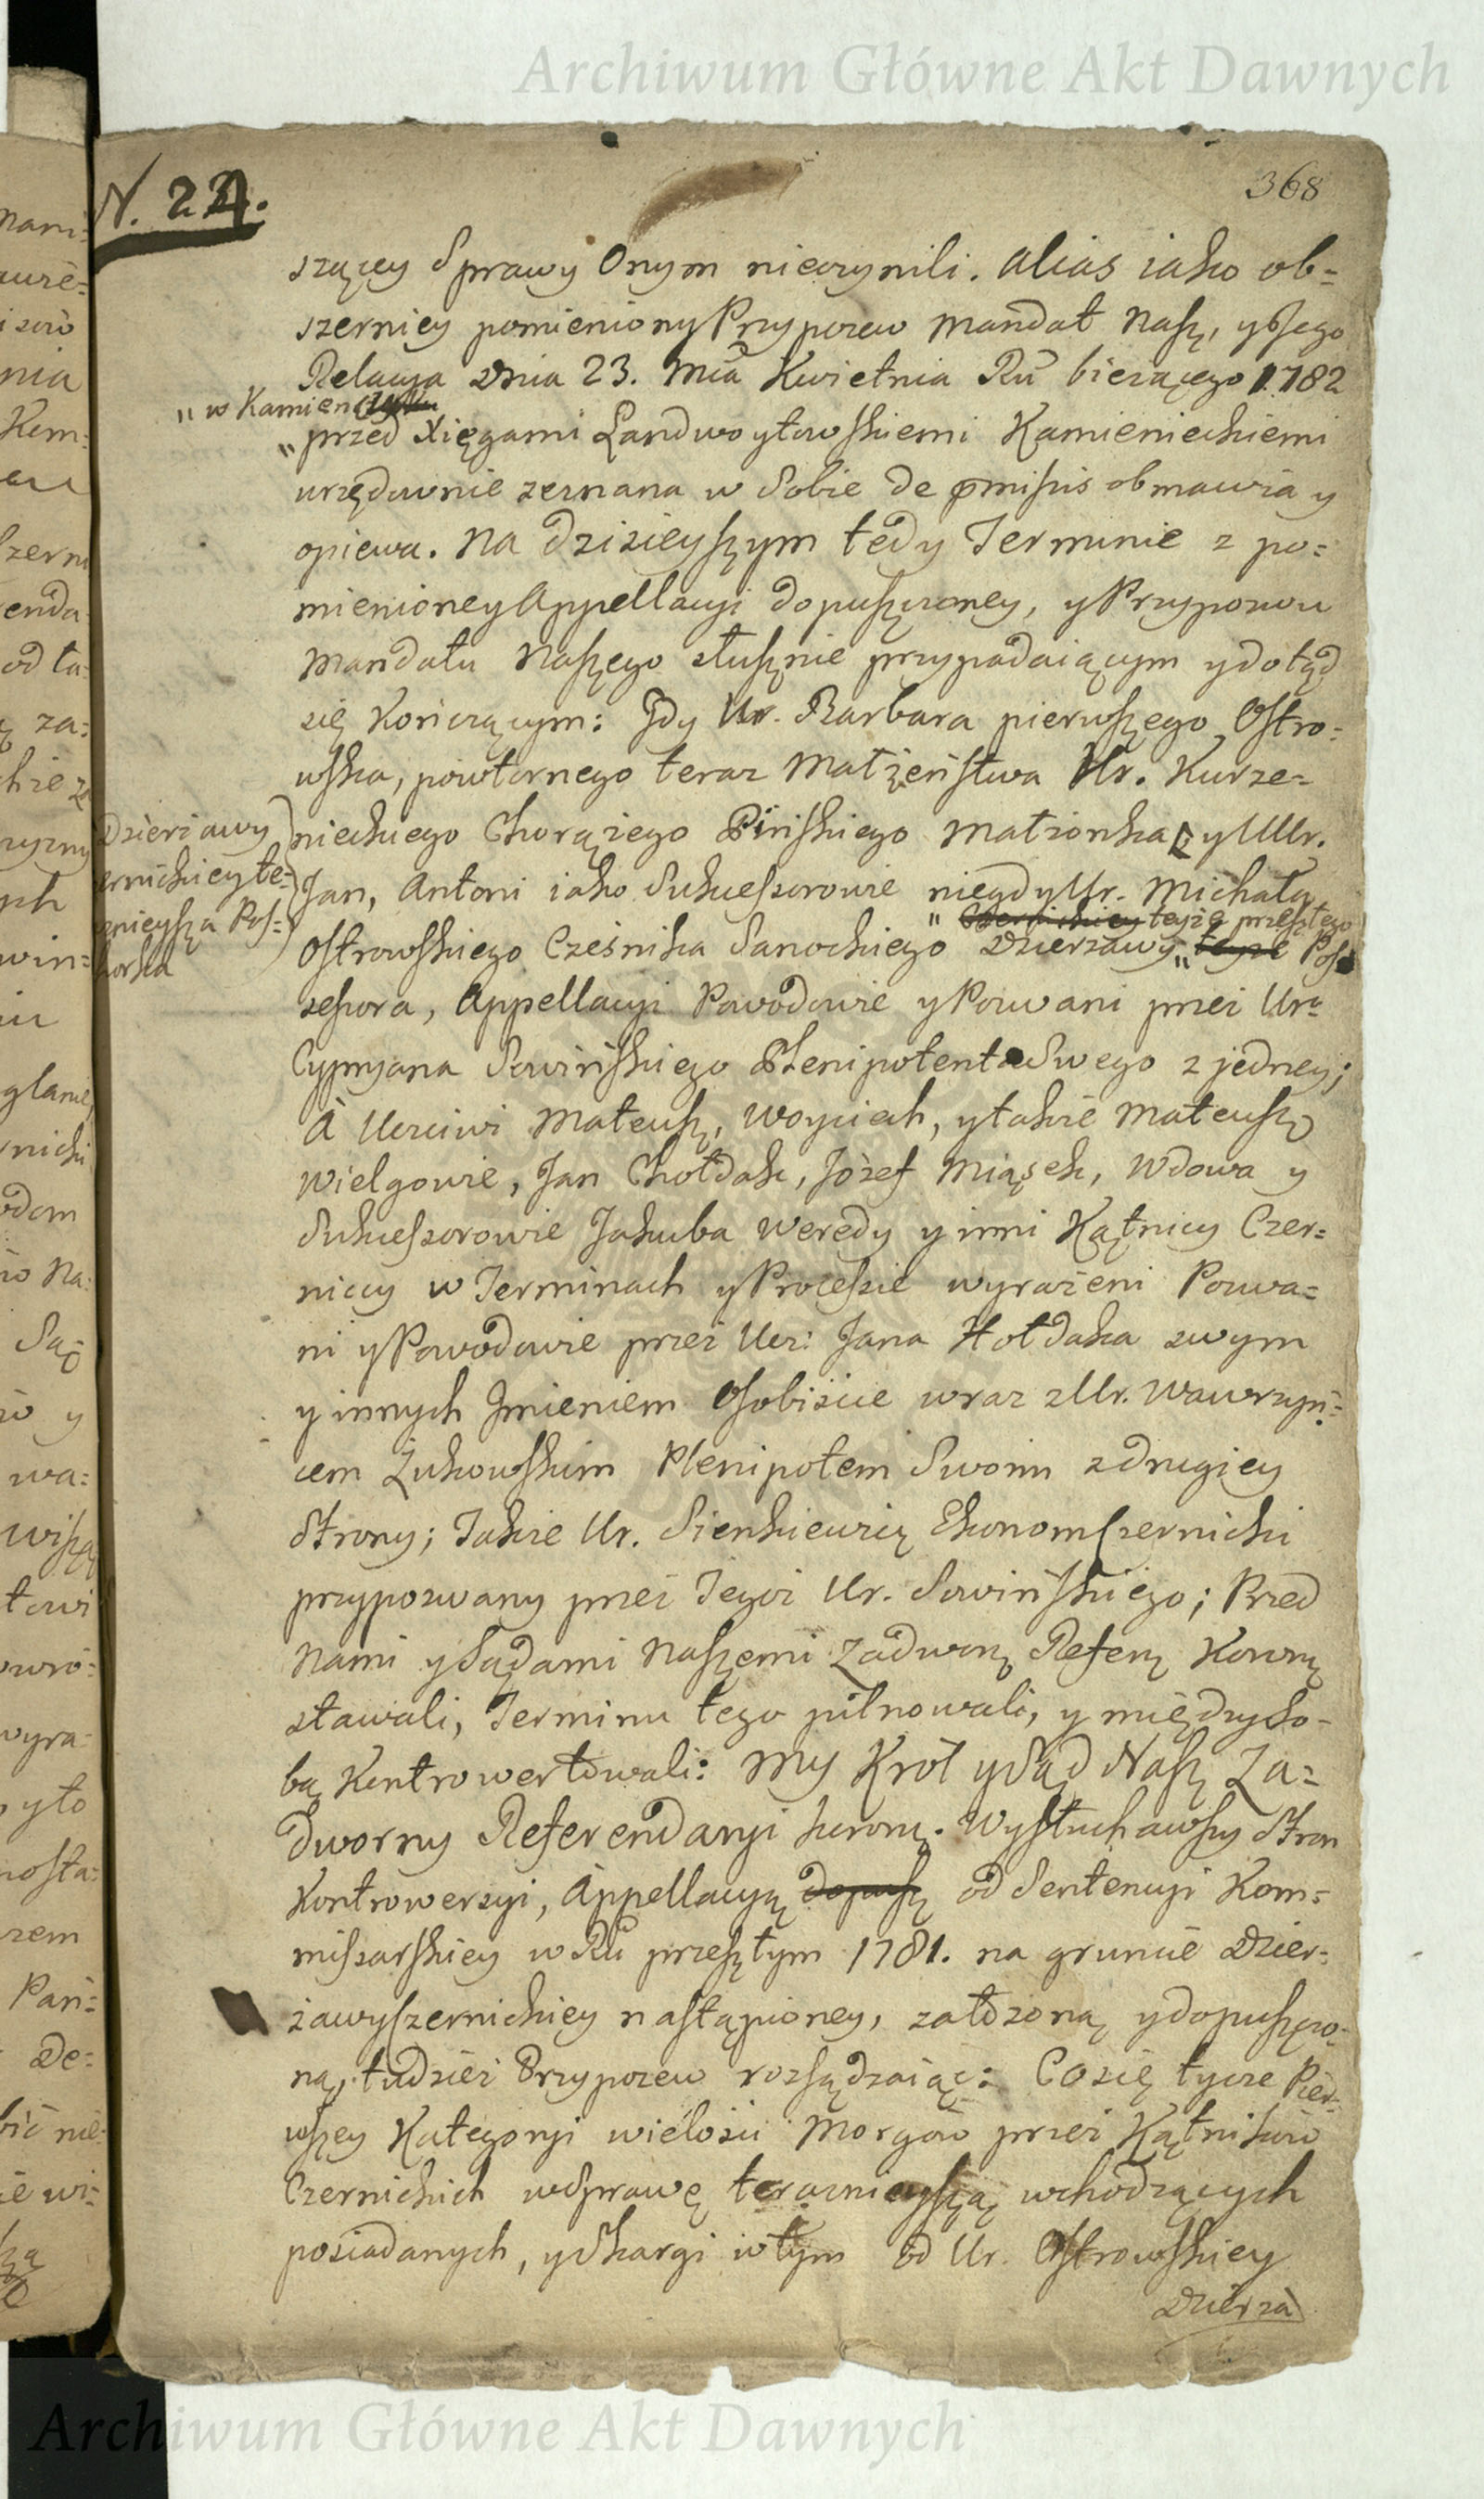 Archiwum Główne Akt Dawnych
N. 22.
368
szącey Sprawy Onym nieczynili. alias iako ob=
szerniey pomieniony Przypozew Mandat Nasz, y Jego
Relacya Dnia 23. Mca Kwietnia Ru bieżącego 1782
" w Kamienczyku
" przed Xięgami Landwoytowskiemi Kamienieckiemi
urzędownie zeznana w Sobie de pmissis obmawia y
opiewa. Na dzisieyszym tedy Terminie z po=
mienioney Appellacyi dopuszczoney, y Przypozwu
Mandatu Naszego słusznie przypadaiącym y dotąd
się Kończącym: Gdy Ur. Barbara pierwszego Ostro=
wska, powtornego teraz Małżeństwa Ur. Kurze=
niechiego Chorążego Pińskiego Małżonka y UUr.
Dzierżawy
ernickiey te=
enieysza Pos=
sorka
Jan, Antoni iako Sukcessorowie niegdy Ur. Michała
" Czernickiey teyże przeszłego
Ostrowskiego Cześnika Sanockiego Dzierżawy " teyże Pos
sessora, Appellacyi Powodowie y Pozwani przez Ur.
Cypryana Sowińskiego Plenipotenta Swego z jedney;
A Uczciwi Mateusz, Woyciech, y także Mateusz
Wielgowie, Jan Chołdak, Józef Miąsek, Wdowa y
Sukcessorowie Jakuba Weredy y inni Kątnicy Czer=
niccy w Terminach y Processie wyrażeni Pozwa=
ni y Powodowie przez Ucz: Jana Hołdaka swym
y innych Jmieniem Osobiście wraz z Ur. Wawrzyń=
cem Żukowskim Plenipotem Swoim z drugiey
Strony; Także Ur. Sienkiewicz Ekonom Czernicki
przypozwany przez Tegoż Ur. Sowińskiego; Przed
Nami y Sądami Naszemi Zadwor Referen Koron
stawali, Terminu tego pilnowali, y między So-
bą Kontrowertowali: My Król y Sąd Nasz Za=
dworny Referendaryi koron. Wysłuchawszy Stron
Kontrowersyi, Appellacyą dopusz od Sentencyi Kom=
missarskiey w Ru przeszłym 1781. na gruncie Dzier=
żawy Czernickiey nastąpioney, założoną y dopuszczo=
ną, tudzież Przypozew rozsądzaiąc: Co się tycze Pier=
wszey Kategoryi wielości Morgów przez Kątników
Czernickich w Sprawę teraznieyszą wchodzących
posiadanych, y Skargi w tym od Ur. Ostrowskiey
Dzierża
Archiwum Główne Akt Dawnych